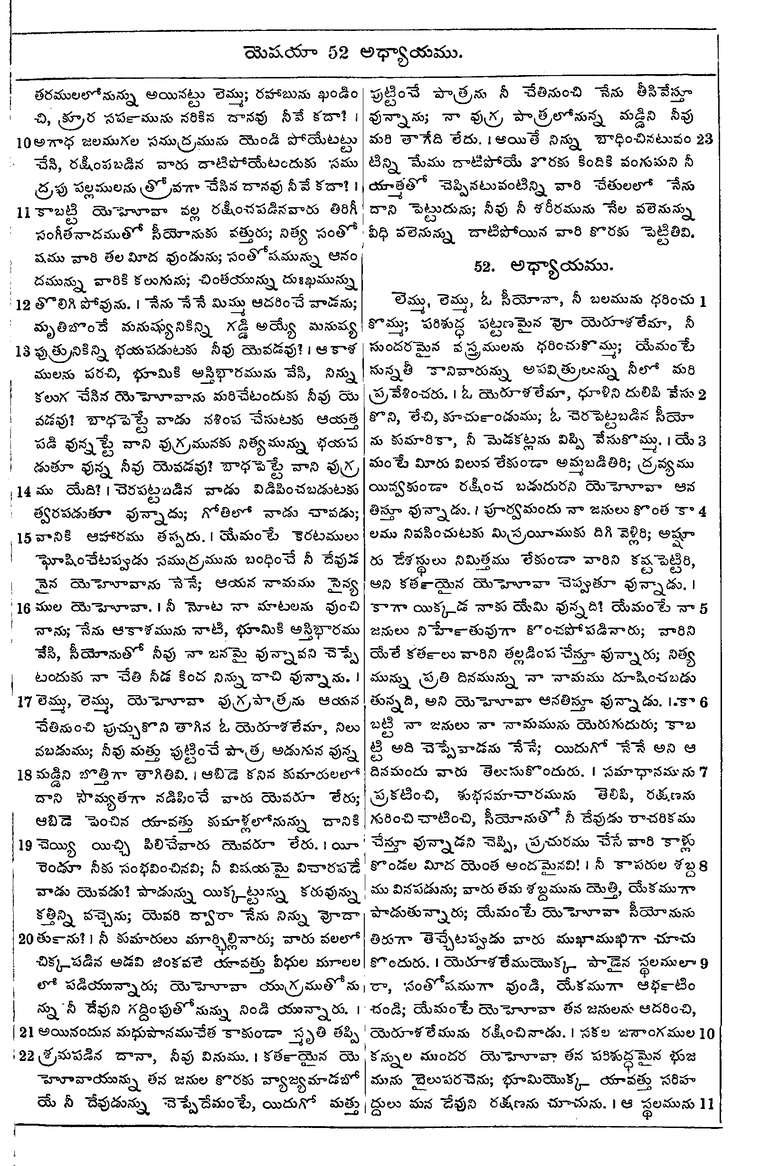 యెషయా 52 అధ్యాయము.
తరములలోనున్న అయినట్టు లెమ్ము; రహాబును ఖండిం
చి, క్రూర సర్పమును నరికిన దానవు నీవే కదా? ।
10 అగాధ జలముగల సముద్రమును యెండి పోయేటట్టు
చేసి, రక్షింపబడిన వారు దాటిపోయేటందుకు సము
ద్రపు పల్లములను త్రోవగా చేసిన దానవు నీవే కదా? ।
11 కాబట్టి యెహోవా వల్ల రక్షించపడినవారు తిరిగీ
సంగీతనాదముతో సీయోనుకు వత్తురు; నిత్య సంతో
షము వారి తల మీద వుండును; సంతోషమున్ను ఆనం
దమున్ను వారికి కలుగును; చింతయున్ను దుఃఖమున్ను
12 తొలిగి పోవును. । నేను నేనే మిమ్ము ఆదరించే వాడను;
మృతిబొందే మనుష్యునికిన్ని గడ్డి అయ్యే మనుష్య
13 పుత్రునికిన్ని భయపడుటకు నీవు యెవడవు? । ఆకాశ
ములను పరచి, భూమికి అస్తిభారమును వేసి, నిన్ను
కలుగ చేసిన యెహోవాను మరిచేటందుకు నీవు యె
వడవు? బాధపెట్టే వాడు నశింప చేసుటకు ఆయత్త
పడి వున్నట్టే వాని వుగ్రమునకు నిత్యమున్ను భయప
డుతూ వున్న నీవు యెవడవు? బాధపెట్టే వాని వుగ్ర
14 ము యేది? । చెరపట్టబడిన వాడు విడిపించబడుటకు
త్వరపడుతూ వున్నాడు; గోతిలో వాడు చావడు;
15 వానికి ఆహారము తప్పదు. । యేమంటే కెరటములు
ఘోషించేటప్పుడు సముద్రమును బంధించే నీ దేవుడ
నైన యెహోవాను నేనే; ఆయన నామము సైన్య
16 ముల యెహోవా. । నీ నోట నా మాటలను వుంచి
నాను; నేను ఆకాశమును నాటి, భూమికి అస్తిభారము
వేసి, సీయోనుతో నీవు నా జనమై వున్నావని చెప్పే
టందుకు నా చేతి నీడ కింద నిన్ను దాచి వున్నాను. ।
17 లెమ్ము, లెమ్ము, యెహోవా వుగ్రపాత్రను ఆయన
చేతినుంచి పుచ్చుకొని తాగిన ఓ యెరూశలేమా, నిలు
వబడుము; నీవు మత్తు పుట్టించే పాత్ర అడుగున వున్న
18 మడ్డిని బొత్తిగా తాగితివి. । ఆబిడె కనిన కుమారులలో
దాని సౌమ్యతగా నడిపించే వారు యెవరూ లేరు;
ఆబిడె పెంచిన యావత్తు కుమాళ్లలోనున్న దానికి
19 చెయ్యి యిచ్చి పిలిచేవారు యెవరూ లేరు. । యీ
రెండూ నీకు సంభవించినవి; నీ విషయమై విచారపడే
వాడు యెవడు? పాడున్ను యిక్కట్టున్ను కరువున్ను
కత్తిన్ని వచ్చెను; యెవరి ద్వారా నేను నిన్ను వోదా
20 తును? । నీ కుమారులు మూర్ఛిల్లినారు; వారు వలలో
చిక్కపడిన అడవి జింకవలె యావత్తు వీధుల మూలల
లో పడియున్నారు; యెహోవా యుగ్రముతోను
న్ను నీ దేవుని గద్దింపుతోనున్ను నిండి యున్నారు. ।
21 అయినందున మధుపానముచేత కాకుండా స్మృతి తప్పి
22 శ్రమపడిన దానా, నీవు వినుము. । కర్తయైన యె
హోవాయున్ను తన జనుల కొరకు వ్యాజ్యమాడబో
యే నీ దేవుడున్ను చెప్పేదేమంటే, యిదుగో మత్తు
పుట్టించే పాత్రను నీ చేతినుంచి నేను తీసివేస్తూ
వున్నాను; నా వుగ్ర పాత్రలోనున్న మడ్డిని నీవు
మరి తాగేది లేదు. । అయితే నిన్ను బాధించినటువం 23
టిన్ని మేము దాటిపోయే కొరకు కిందికి వంగుమని నీ
యాత్మతో చెప్పినటువంటిన్ని వారి చేతులలో నేను
దాని పెట్టుదును; నీవు నీ శరీరమును నేల వలెనున్ను
వీధి వలెనున్ను దాటిపోయిన వారి కొరకు పెట్టితివి.
52. అధ్యాయము.
లెమ్ము, లెమ్ము, ఓ సీయోనా, నీ బలమును ధరించు 1
కొమ్ము; పరిశుద్ధ పట్టణమైన వో యెరూశలేమా, నీ
సుందరమైన వస్త్రములను ధరించుకొమ్ము; యేమంటే
సున్నతీ కానివారున్ను అపవిత్రులున్ను నీలో మరి
ప్రవేశించరు. । ఓ యెరూశలేమా, ధూళిని దులిపి వేసు 2
కొని, లేచి, కూచుండుము; ఓ చెరపెట్టబడిన సీయో
ను కుమారికా, నీ మెడకట్లను విప్పి వేసుకొమ్ము. । యే 3
మంటే మీరు విలువ లేకుండా అమ్మబడితిరి; ద్రవ్యము
యివ్వకుండా రక్షించ బడుదురని యెహోవా ఆన
తిస్తూ వున్నాడు. । పూర్వమందు నా జనులు కొంత కా 4
లము నివసించుటకు మిస్రయీముకు దిగి వెళ్లిరి; అష్షూ
రు దేశస్థులు నిమిత్తము లేకుండా వారిని కష్టపెట్టిరి,
అని కర్తయైన యెహోవా చెప్పుతూ వున్నాడు. ।
కాగా యిక్కడ నాకు యేమి వున్నది! యేమంటే నా 5
జనులు నిర్హేతువుగా కొంచపోపడినారు; వారిని
యేలే కర్తలు వారిని తల్లడింప చేస్తూ వున్నారు; నిత్య
మున్ను ప్రతి దినమున్ను నా నామము దూషించబడు
తున్నది, అని యెహోవా ఆనతిస్తూ వున్నాడు. । కా 6
బట్టి నా జనులు నా నామమును యెరుగుదురు; కాబ
ట్టి అది చెప్పేవాడను నేనే; యిదుగో నేనే అని ఆ
దినమందు వారు తెలుసుకొందురు. । సమాధానమును 7
ప్రకటించి, శుభసమాచారమును తెలిపి, రక్షణను
గురించి చాటించి, సీయోనుతో నీ దేవుడు రాచరికము
చేస్తూ వున్నాడని చెప్పి, ప్రచురము చేసే వారి కాళ్లు
కొండల మీద యెంత అందమైనవి! । నీ కాపరుల శబ్ద 8
ము వినపడును; వారు తమ శబ్దమును యెత్తి, యేకముగా
పాడుతున్నారు; యేమంటే యెహోవా సీయోనును
తిరుగా తెచ్చేటప్పుడు వారు ముఖాముఖిగా చూచు
కొందురు. । యెరూశలేముయొక్క పాడైన స్థలములా 9
రా, సంతోషముగా వుండి, యేకముగా ఆర్భటిం
చండి; యేమంటే యెహోవా తన జనులను ఆదరించి,
యెరూశలేమును రక్షించినాడు. । సకల జనాంగముల 10
కన్నుల ముందర యెహోవా తన పరిశుద్ధమైన భుజ
మును బైలుపరచెను; భూమియొక్క యావత్తు సరిహ
ద్దులు మన దేవుని రక్షణను చూచును. । ఆ స్థలమును 11